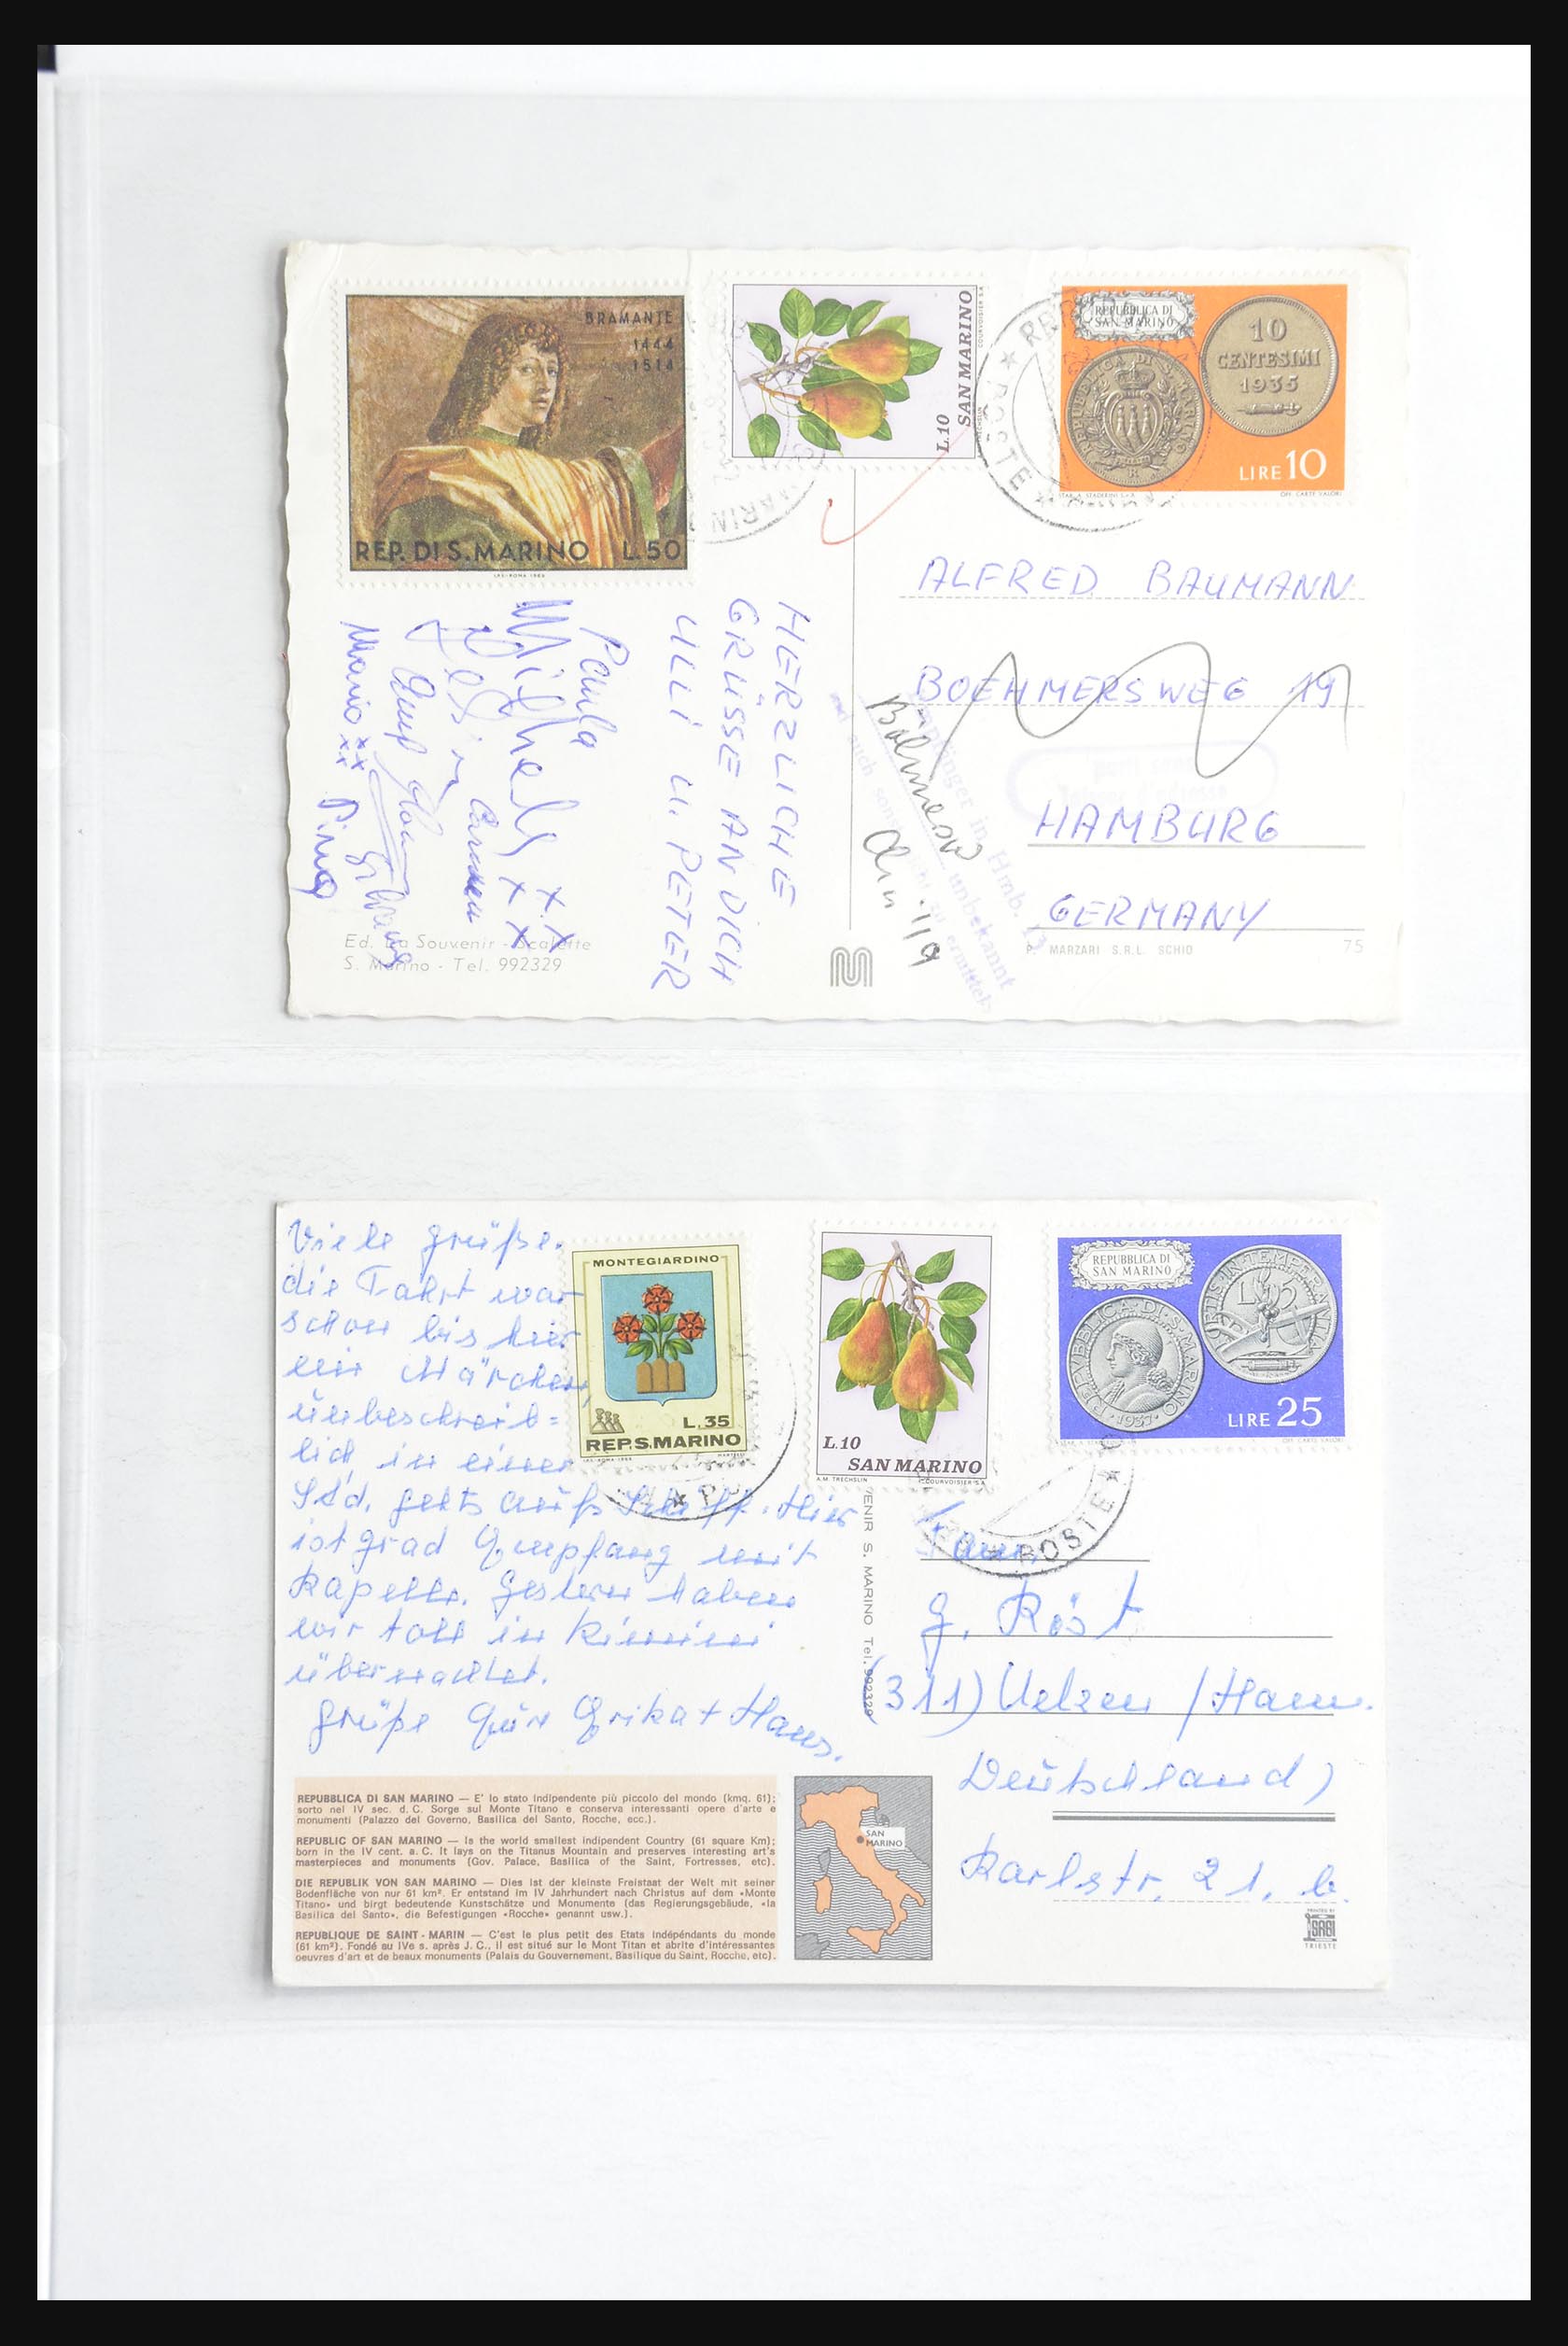 BRAMANTE
1444
1514
REP. DI S. MARINO L. 50
I.P.S.-ROMA-1969
L.10
SAN MARINO
COURVOISIER S.A.
REPUBBLICA DI
SAN MARINO
REPUBBLICA DI S. MARINO
10
CENTESIMI
1935
LIRE 10
OFF. CARTE VALORI
POSTE
ALFRED BAUMANN
BOEHMERSWEG 19
HAMBURG
GERMANY
HERZLICHE
GRÜSSE AN DICH
ULLI U. PETER
Paula
Carmen
Mario xx
xx
Empfänger in Hmb. 13
unbekannt
Ed. La Souvenir - Scalette
S. Marino - Tel. 992329
P. MARZARI S.R.L. SCHIO
75
Viele Grüße.
die Fahrt war
schon bis hier
ein Märchen,
unbeschreib=
lich in einer
Std. gehts aufs Schiff. Hier
ist grad Empfang mit
Kapelle. Gestern haben
wir toll in Rimini
übernachtet.
Grüße Eure Erika + Hans.
MONTEGIARDINO
L. 35
REP. S. MARINO
L.10
SAN MARINO
A.M. TRECHSLIN COURVOISIER S.A.
REPUBBLICA DI
SAN MARINO
RESPVBBLICA DI S. MARINO
1937
L. 5
LIRE 25
OFF. CARTE VALORI
POSTE
S. MARINO Tel. 992329
Frau
G. Röst
(311) Uelzen / Hann.
Deutschland)
Karlstr. 21. b.
REPUBBLICA DI SAN MARINO — E' lo stato indipendente più piccolo del mondo (kmq. 61);
sorto nel IV sec. d. C. Sorge sul Monte Titano e conserva interessanti opere d'arte e
monumenti (Palazzo del Governo, Basilica del Santo, Rocche, ecc.).
REPUBLIC OF SAN MARINO — Is the world smallest indipendent Country (61 square Km);
born in the IV cent. a. C. It lays on the Titanus Mountain and preserves interesting art's
masterpieces and monuments (Gov. Palace, Basilica of the Saint, Fortresses, etc).
DIE REPUBLIK VON SAN MARINO — Dies ist der kleinste Freistaat der Welt mit seiner
Bodenfläche von nur 61 km². Er entstand im IV Jahrhundert nach Christus auf dem «Monte
Titano» und birgt bedeutende Kunstschätze und Monumente (das Regierungsgebäude, «la
Basilica del Santo», die Befestigungen «Rocche» genannt usw.).
REPUBLIQUE DE SAINT-MARIN — C'est le plus petit des Etats Indépéndants du monde
(61 km²). Fondé au IVe s. après J. C., il est situé sur le Mont Titan et abrite d'intéressantes
oeuvres d'art et de beaux monuments (Palais du Gouvernement, Basilique du Saint, Rocche, etc).
SAN
MARINO
PRINTED BY
SAGI
TRIESTE